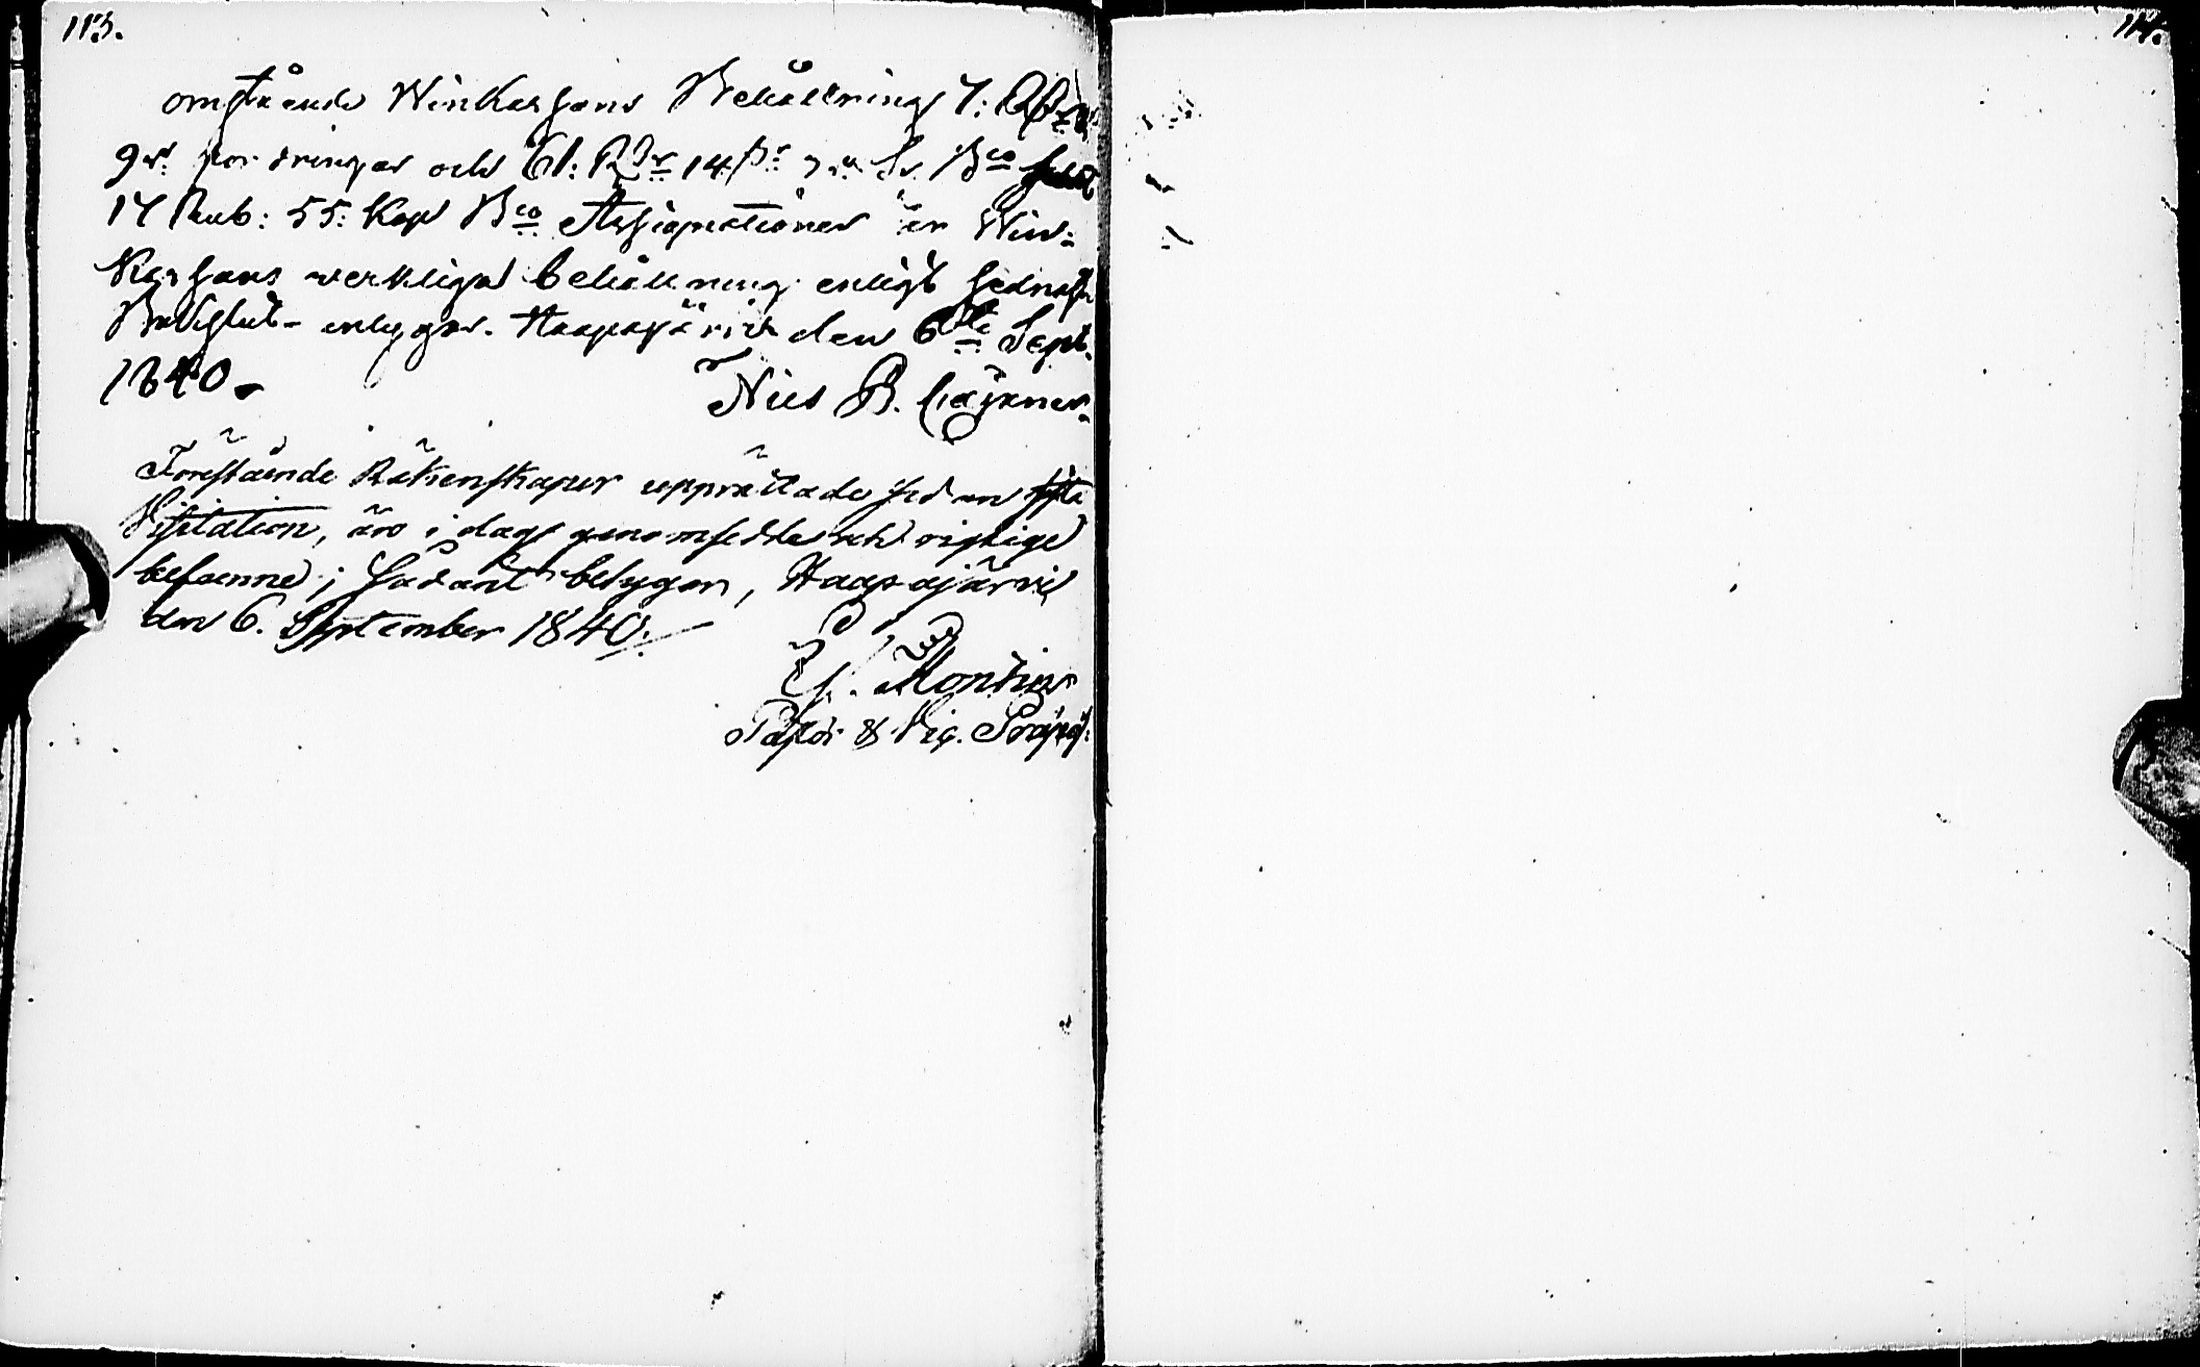 113.
omstående Winkassans Behållning 7: 
9 rs fordringar och 61: Rdr 14 βr 7 rs Sv. Bco
17 Rub: 55: Kop Bco Assignationer är Win=
kassans verkliga behållning enligt sednaste
Bokslut - intygar. Haapajärvi den 6te Sept.
1840.
Nils B.
Förestående Räkenskaper upprättade sedan sista
Visitation, äro i dag genomsedda och riktige
befunne; sådant betygar, Haapajärvi
den 6. September 1840.
Montin
Pastor & Vic. Præpos:
114.